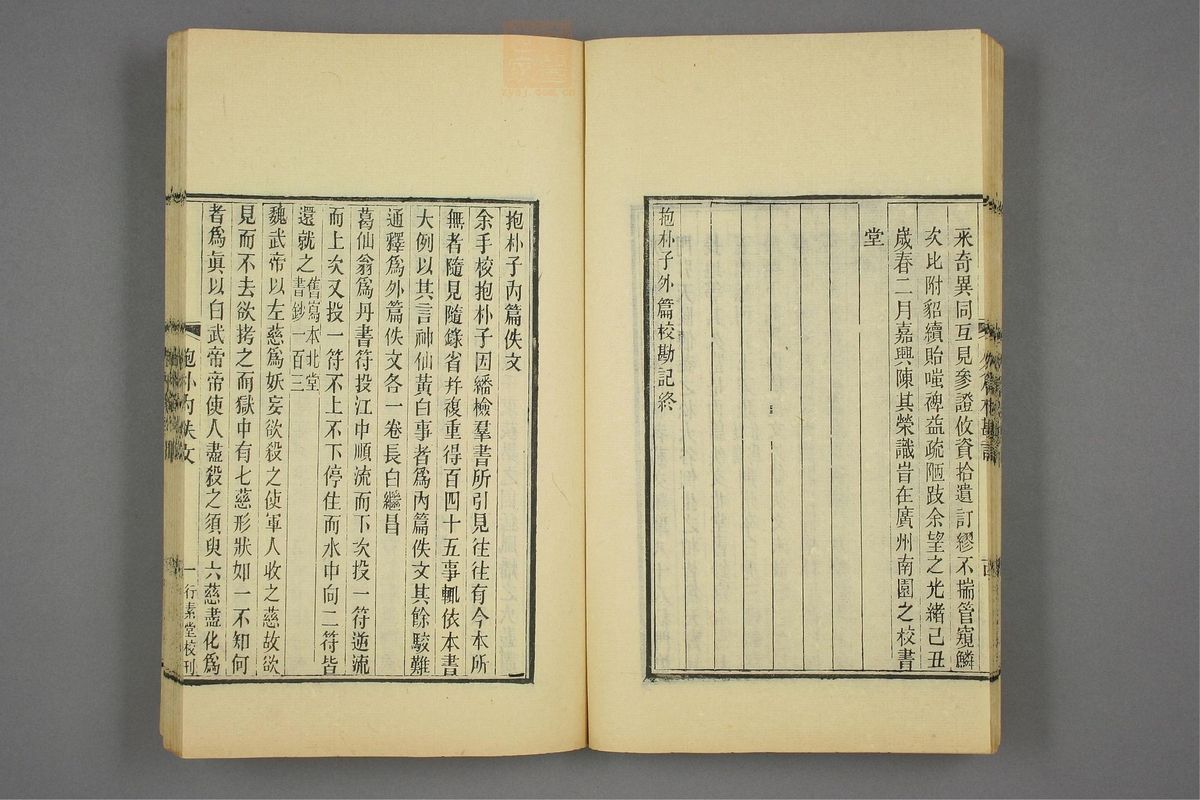 釆奇異同互見參證攸資拾遺訂繆不揣管窺鱗
次比附貂續貽嗤裨益疏陋跂余望之光緒己丑
歲春二月嘉興陳其榮識旹在廣州南園之校書
堂
抱朴子外篇校勘記終
抱朴子內篇佚文
余手校抱朴子因繙檢羣書所引見往往有今本所
無者隨見隨錄省幷複重得百四十五事輒依本書
大例以其言神仙黃白事者爲內篇佚文其餘駮難
通釋爲外篇佚文各一卷長白繼昌
葛仙翁爲丹書符投江中順流而下次投一符逆流
而上次又投一符不上不下停住而水中向二符皆
還就之舊寫本北堂書鈔一百三
魏武帝以左慈爲妖妄欲殺之使軍人收之慈故欲
見而不去欲拷之而獄中有七慈形狀如一不知何
者爲眞以白武帝帝使人盡殺之須臾六慈盡化爲
抱朴內佚文
一行素堂校刊